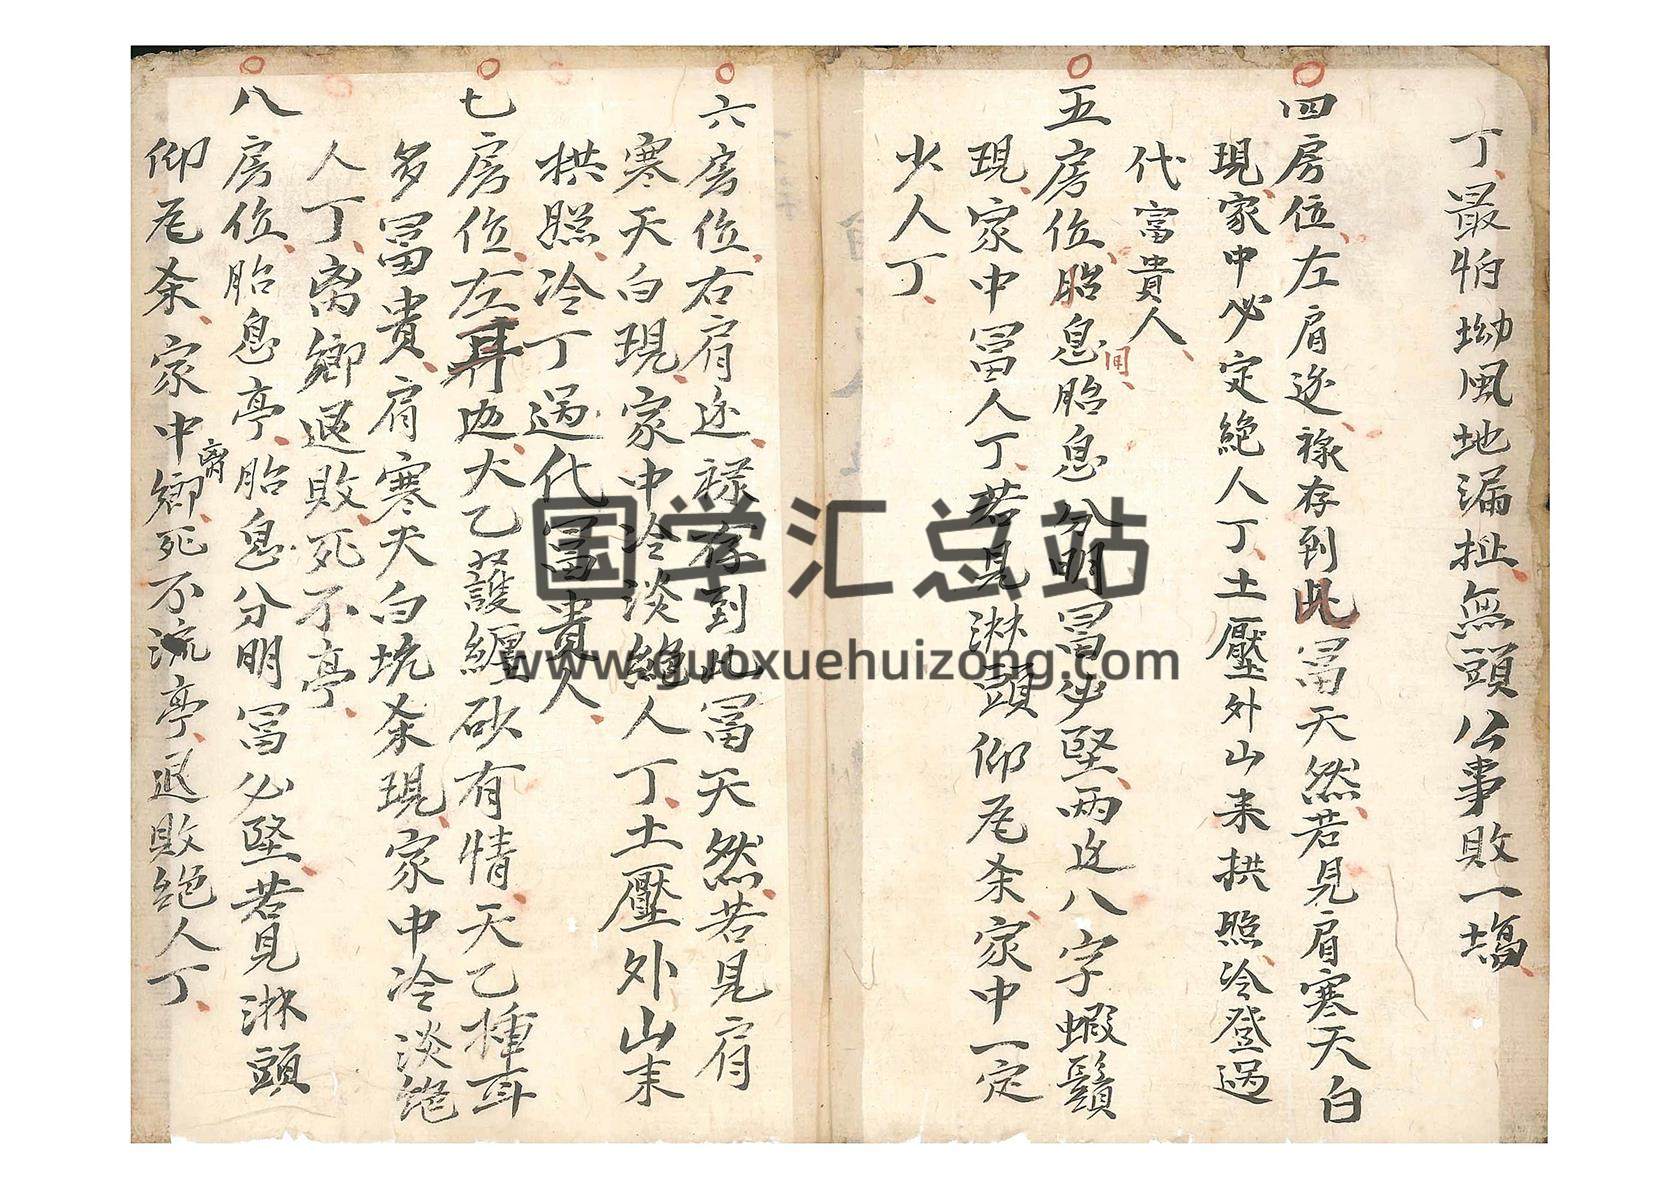 丁最怕坳風地漏扯無頭公事敗一塲
四房位左肩迯祿存到此冨天然若見肩寒天白
現家中必定絕人丁土壓外山来拱照冷登过
代富貴人
五房位胎息胎息分明冨必堅兩边八字蝦鬚
現家中冨人丁若見淋頭仰尾杀家中一定
少人丁
六房位右肩迯祿存到此冨天然若見肩
寒天白現家中冷淡絕人丁土壓外山来
拱照冷丁过代冨貴人
七房位左耳边大乙護纏砂有情天乙種耳
多冨貴肩寒天白坑杀現家中冷淡绝
人丁离鄉退敗死不亭
八房位胎息亭胎息分明冨必堅若見淋頭
仰尾杀家中離鄉死不流亭退敗绝人丁
国学汇总站
www.guoxuehuizong.com